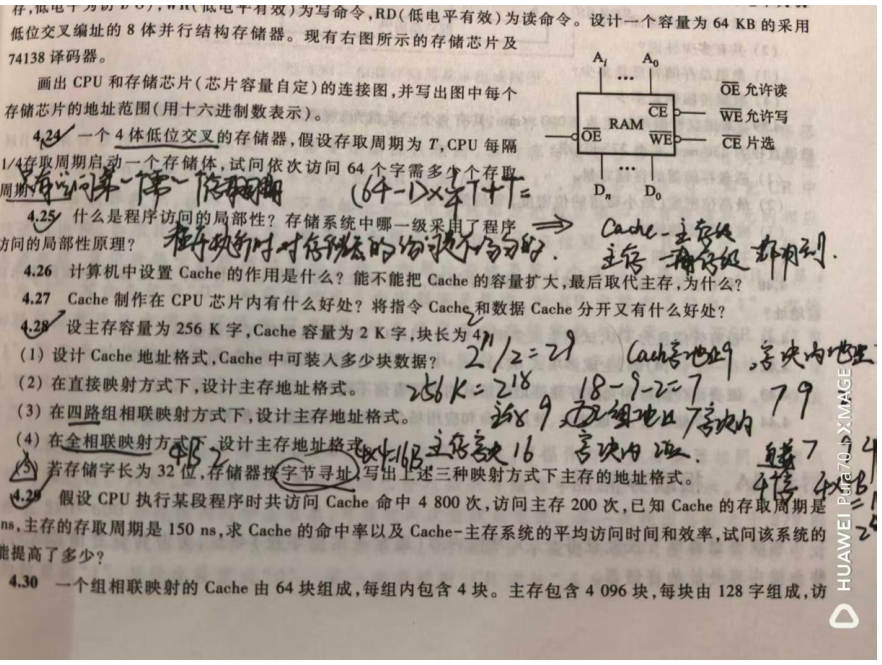 为写命令,RD(低电平有效)为读命令。设计一个容量为 64 KB 的采用
低位交叉编址的 8 体并行结构存储器。现有右图所示的存储芯片及
74138 译码器。
画出 CPU 和存储芯片(芯片容量自定)的连接图,并写出图中每个
存储芯片的地址范围(用十六进制数表示)。
Ai A0
... 
OE 允许读
WE 允许写
CE 片选
OE RAM CE
WE
...
Dn D0
4.24 一个 4 体低位交叉的存储器,假设存取周期为 T,CPU 每隔
1/4存取周期启动一个存储体,试问依次访问 64 个字需多少个存取
周期
(64-1)×1/4T+T=
4.25 什么是程序访问的局部性? 存储系统中哪一级采用了程序
访问的局部性原理?
程序执行时对存储器的访问是不均匀的.
⇒ Cache-主存级
主存-辅存级 都用到.
4.26 计算机中设置 Cache 的作用是什么? 能不能把 Cache 的容量扩大,最后取代主存,为什么?
4.27 Cache 制作在 CPU 芯片内有什么好处? 将指令 Cache 和数据 Cache 分开又有什么好处?
4.28 设主存容量为 256 K 字,Cache 容量为 2 K 字,块长为 4。
(1) 设计 Cache 地址格式,Cache 中可装入多少块数据?
(2) 在直接映射方式下,设计主存地址格式。
256K=2^18 18-9-2=7 7 9
(3) 在四路组相联映射方式下,设计主存地址格式。
(4) 在全相联映射方式下,设计主存地址格式。
(5) 若存储字长为 32 位,存储器按字节寻址,写出上述三种映射方式下主存的地址格式。
4.29 假设 CPU 执行某段程序时共访问 Cache 命中 4 800 次,访问主存 200 次,已知 Cache 的存取周期是
ns,主存的存取周期是 150 ns,求 Cache 的命中率以及 Cache-主存系统的平均访问时间和效率,试问该系统的
能提高了多少?
4.30 一个组相联映射的 Cache 由 64 块组成,每组内包含 4 块。主存包含 4 096 块,每块由 128 字组成,访
HUAWEI Pura70 XMAGE